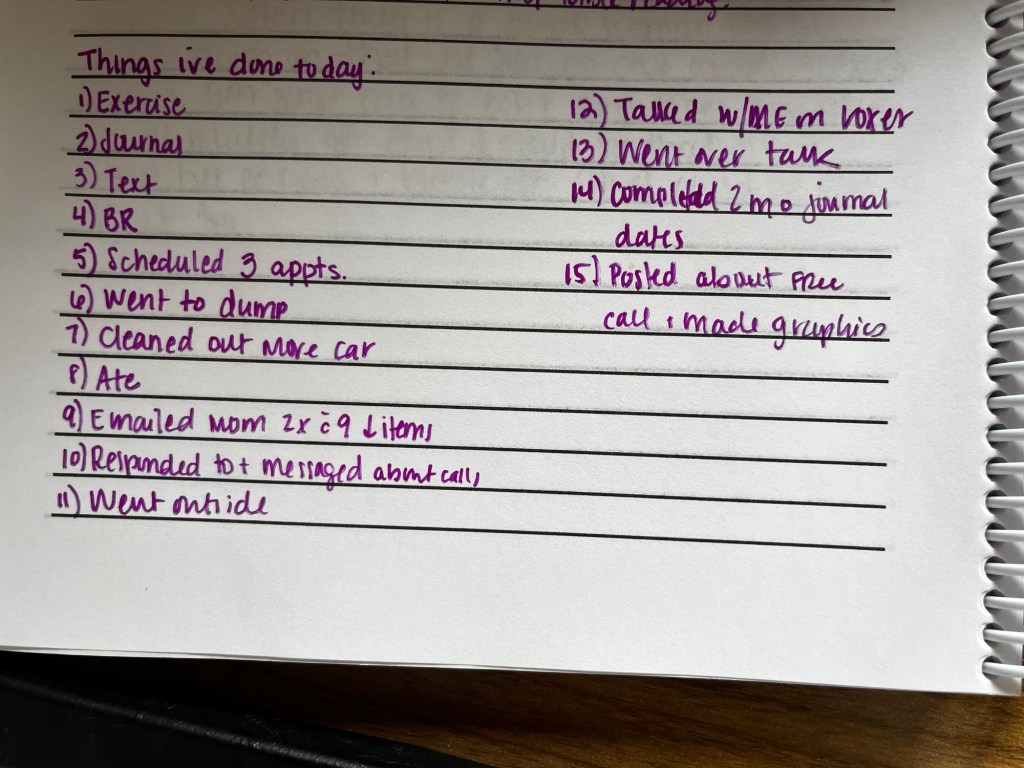 Things ive done today:
1) Exercise
2) Journal
3) Text
4) BR
5) Scheduled 3 appts.
6) Went to dump
7) Cleaned out more car
8) Ate
9) Emailed mom 2x c̄ 9 ↓ items
10) Responded to + messaged about call,
11) Went outside
12) Talked w/ME on voxer
13) Went over talk
14) Completed 2 mo journal
dates
15) Posted about Free
call + made graphics